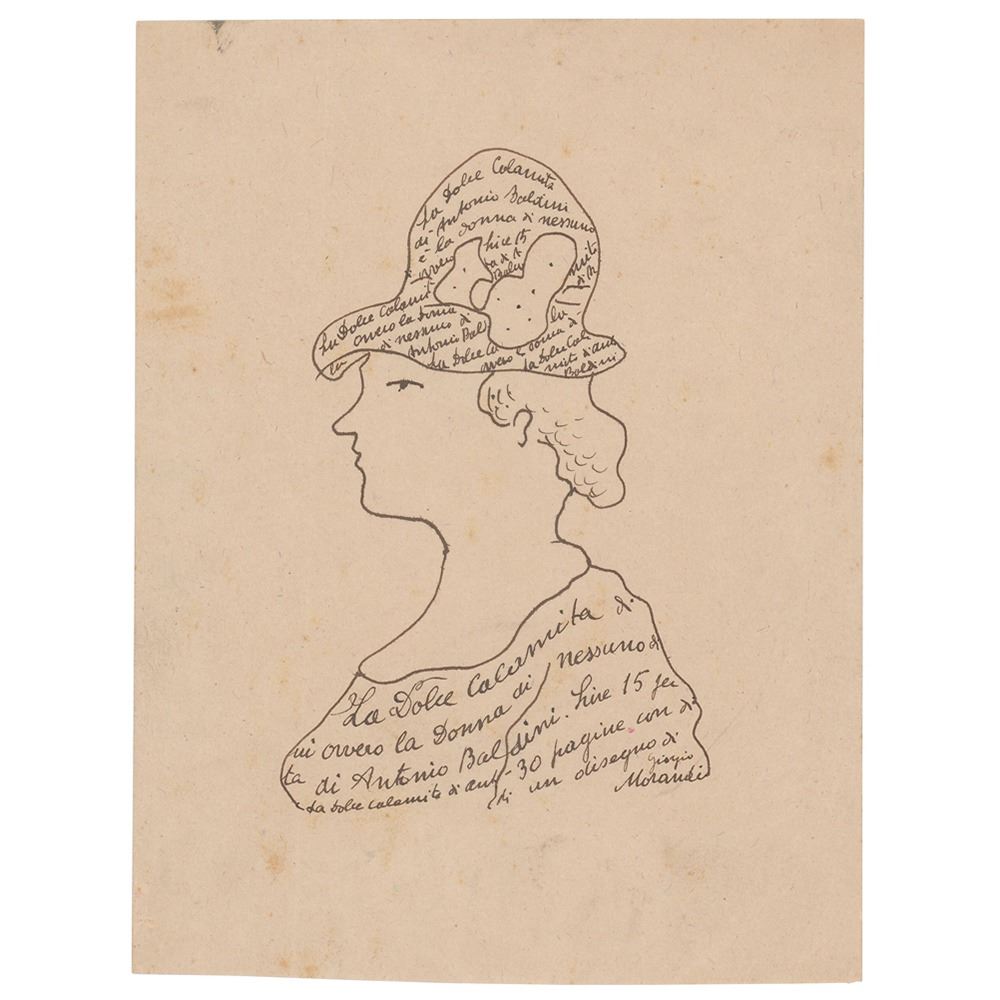 La Dolce Calamita
di Antonio Baldini
è la donna di nessuno
ovvero
lire 15
La Dolce Calamit
ovvero la Donna
di nessuno di
Antonio Bal
La Dolce Ca
la
donna di
La Dolce Cal
mita di
Baldini
La Dolce Calamita di
ni ovvero la Donna di nessuno di
ta di Antonio Baldini. lire 15
La Dolce calamita di 30 pagine con
di un disegno di
Giorgio
Morandi